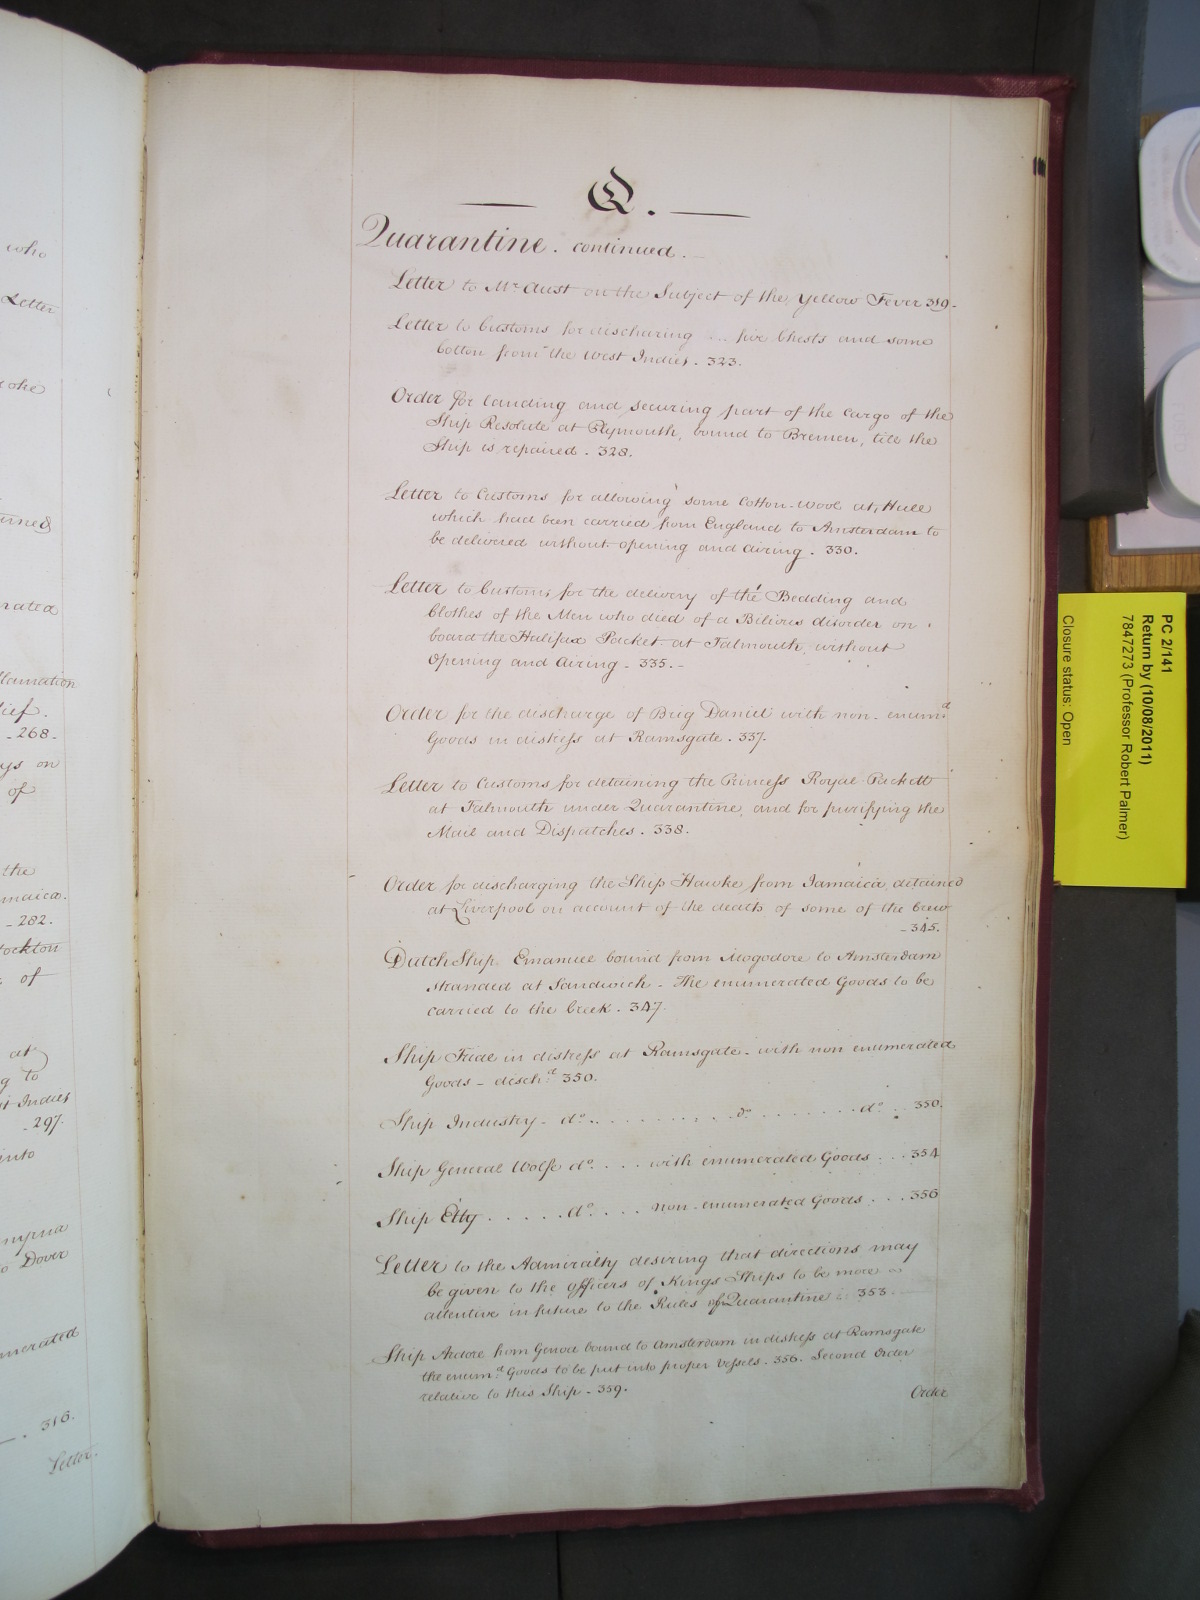 who
Letter
oke
nated
lamation
ief.
-268-
ys on
of
the
maica.
-282.
tockton
of
at
g to
t Indies
-297.
into
myrna
o Dover
merated
316.
Letter.
Q.
Quarantine. continued.
Letter to Mr. Aust on the Subject of the Yellow Fever 319-
Letter to Customs for discharing five Chests and some
Cotton from the West Indies. 323.
Order for landing and securing part of the Cargo of the
Ship Resolute at Plymouth, bound to Bremen, till the
Ship is repaired. 328.
Letter to Customs for allowing some Cotton-wool at Hull
which had been carried from England to Amsterdam to
be delivered without opening and airing. 330.
Letter to Customs for the delivery of the Bedding and
Clothes of the Men who died of a Bilious disorder on
board the Halifax Packet at Falmouth, without
Opening and Airing - 335.-
Order for the discharge of Brig Daniel with non-enumd
Goods in distress at Ramsgate. 337.
Letter to Customs for detaining the Princess Royal Packett
at Falmouth under Quarantine, and for purifying the
Mail and Dispatches. 338.
Order for discharging the Ship Hawke from Jamaica, detained
at Liverpool on account of the death of some of the Crew
-345.
Dutch Ship Emanuel bound from Mogodore to Amsterdam
stranded at Sandwich - The enumerated Goods to be
carried to the Creek. 347.
Ship Fide in distress at Ramsgate - with non enumerated
Goods - dischd. 350.
Ship Industry - do. . . . . . . . . do . . . . . . . do . . 350.
Ship General Wolfe do. . . . with enumerated Goods . . . 354
Ship Etty . . . . . do. . . . non-enumerated Goods . . . 356
Letter to the Admiralty desiring that directions may
be given to the Officers of Kings Ships to be more
attentive in future to the Rules of Quarantine 353
Ship Ardore from Genoa bound to Amsterdam in distress at Ramsgate
the enumd. Goods to be put into proper Vessels. 356. Second Order
relative to this Ship - 359.
Order
PC 2/141
Return by (10/08/2011)
7847273 (Professor Robert Palmer)
Closure status: Open